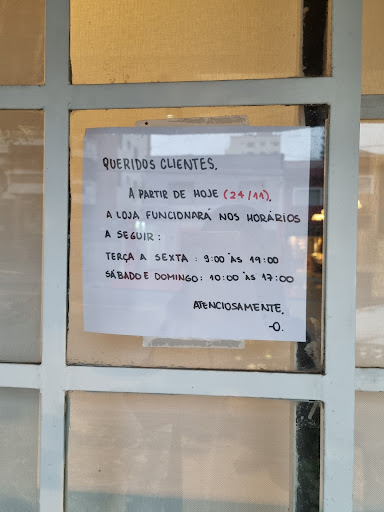 QUERIDOS CLIENTES,
A PARTIR DE HOJE (24/11),
A LOJA FUNCIONARÁ NOS HORÁRIOS
A SEGUIR:
TERÇA A SEXTA: 9:00 ÀS 19:00
SÁBADO E DOMINGO: 10:00 ÀS 17:00
ATENCIOSAMENTE,
-O.